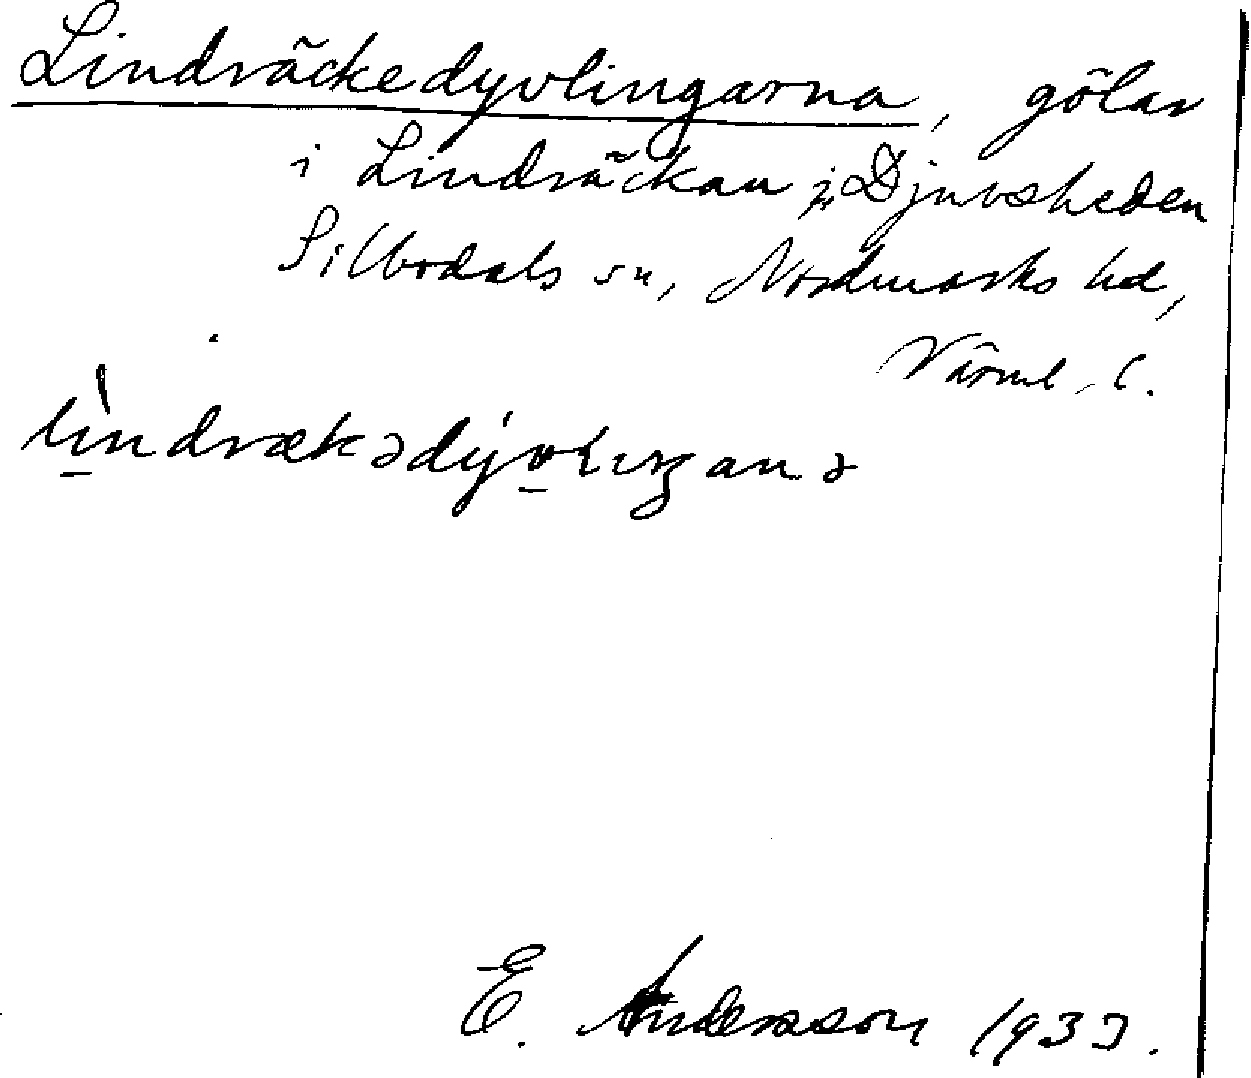 Lindräckedyvlingarna, gölar
i Lindräckan på Djuvsheden
Silbodals sn, Nordmarks hd,
Värml. l.
lìndrækədývlıŋanə
E. Andersson 1933.